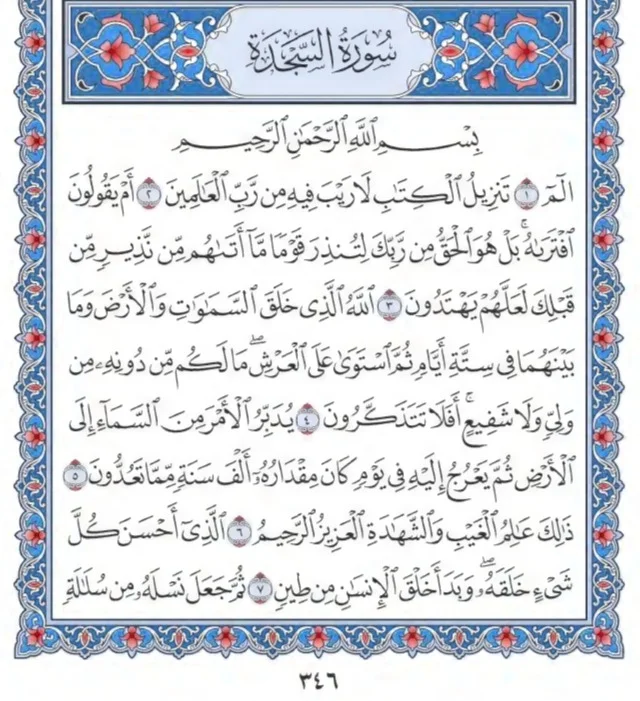 سُورَةُ السَّجْدَةِ
بِسْمِ ٱللَّهِ ٱلرَّحْمَٰنِ ٱلرَّحِيمِ
الٓمٓ ١ تَنزِيلُ ٱلْكِتَٰبِ لَا رَيْبَ فِيهِ مِن رَّبِّ ٱلْعَٰلَمِينَ ٢ أَمْ يَقُولُونَ
ٱفْتَرَىٰهُ ۚ بَلْ هُوَ ٱلْحَقُّ مِن رَّبِّكَ لِتُنذِرَ قَوْمًا مَّآ أَتَىٰهُم مِّن نَّذِيرٍ مِّن
قَبْلِكَ لَعَلَّهُمْ يَهْتَدُونَ ٣ ٱللَّهُ ٱلَّذِى خَلَقَ ٱلسَّمَٰوَٰتِ وَٱلْأَرْضَ وَمَا
بَيْنَهُمَا فِى سِتَّةِ أَيَّامٍ ثُمَّ ٱسْتَوَىٰ عَلَى ٱلْعَرْشِ ۖ مَا لَكُم مِّن دُونِهِۦ مِن
وَلِىٍّ وَلَا شَفِيعٍ ۚ أَفَلَا تَتَذَكَّرُونَ ٤ يُدَبِّرُ ٱلْأَمْرَ مِنَ ٱلسَّمَآءِ إِلَى
ٱلْأَرْضِ ثُمَّ يَعْرُجُ إِلَيْهِ فِى يَوْمٍ كَانَ مِقْدَارُهُۥٓ أَلْفَ سَنَةٍ مِّمَّا تَعُدُّونَ ٥
ذَٰلِكَ عَٰلِمُ ٱلْغَيْبِ وَٱلشَّهَٰدَةِ ٱلْعَزِيزُ ٱلرَّحِيمُ ٦ ٱلَّذِىٓ أَحْسَنَ كُلَّ
شَىْءٍ خَلَقَهُۥ ۖ وَبَدَأَ خَلْقَ ٱلْإِنسَٰنِ مِن طِينٍ ٧ ثُمَّ جَعَلَ نَسْلَهُۥ مِن سُلَٰلَةٍ
٣٤٦